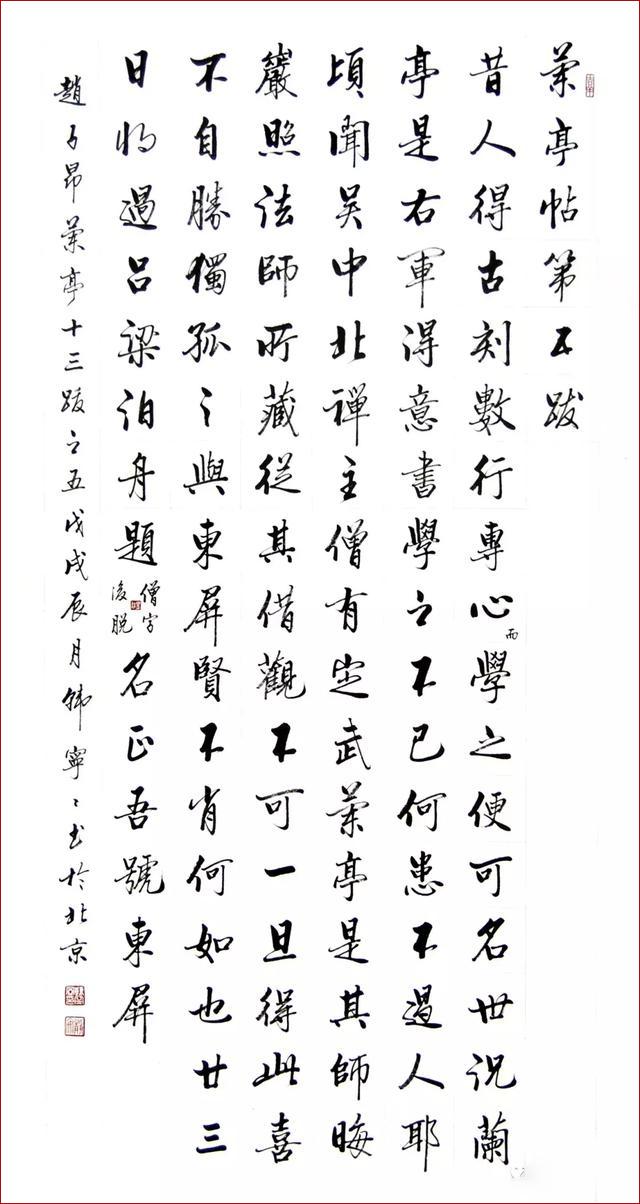 蘭亭帖第五跋
昔人得古刻數行專心而學之便可名世況蘭
亭是右軍得意書學之不已何患不過人耶
頃聞吳中北禪主僧有定武蘭亭是其師晦
巖照法師所藏從其借觀不可一旦得此喜
不自勝獨孤之與東屏賢不肖何如也廿三
日將過呂梁泊舟題僧字後脫名正吾號東屏
趙子昂蘭亭十三跋之五戊戌辰月韓寧〻書於北京